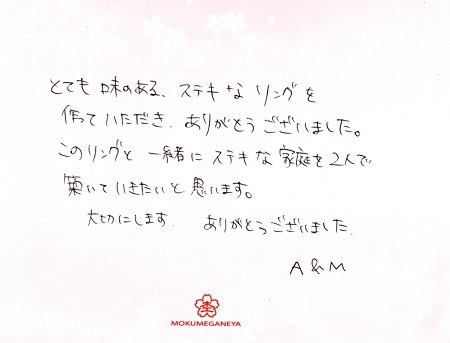 とても味のある、ステキなリングを
作っていただき、ありがとうございました。
このリングと一緒にステキな家庭を2人で
築いていきたいと思います。
大切にします. ありがとうございました.
A&M
MOKUMEGANEYA